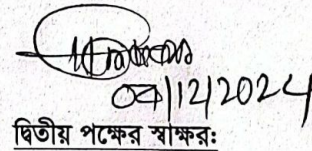 04/12/2024
দ্বিতীয় পক্ষের স্বাক্ষর: